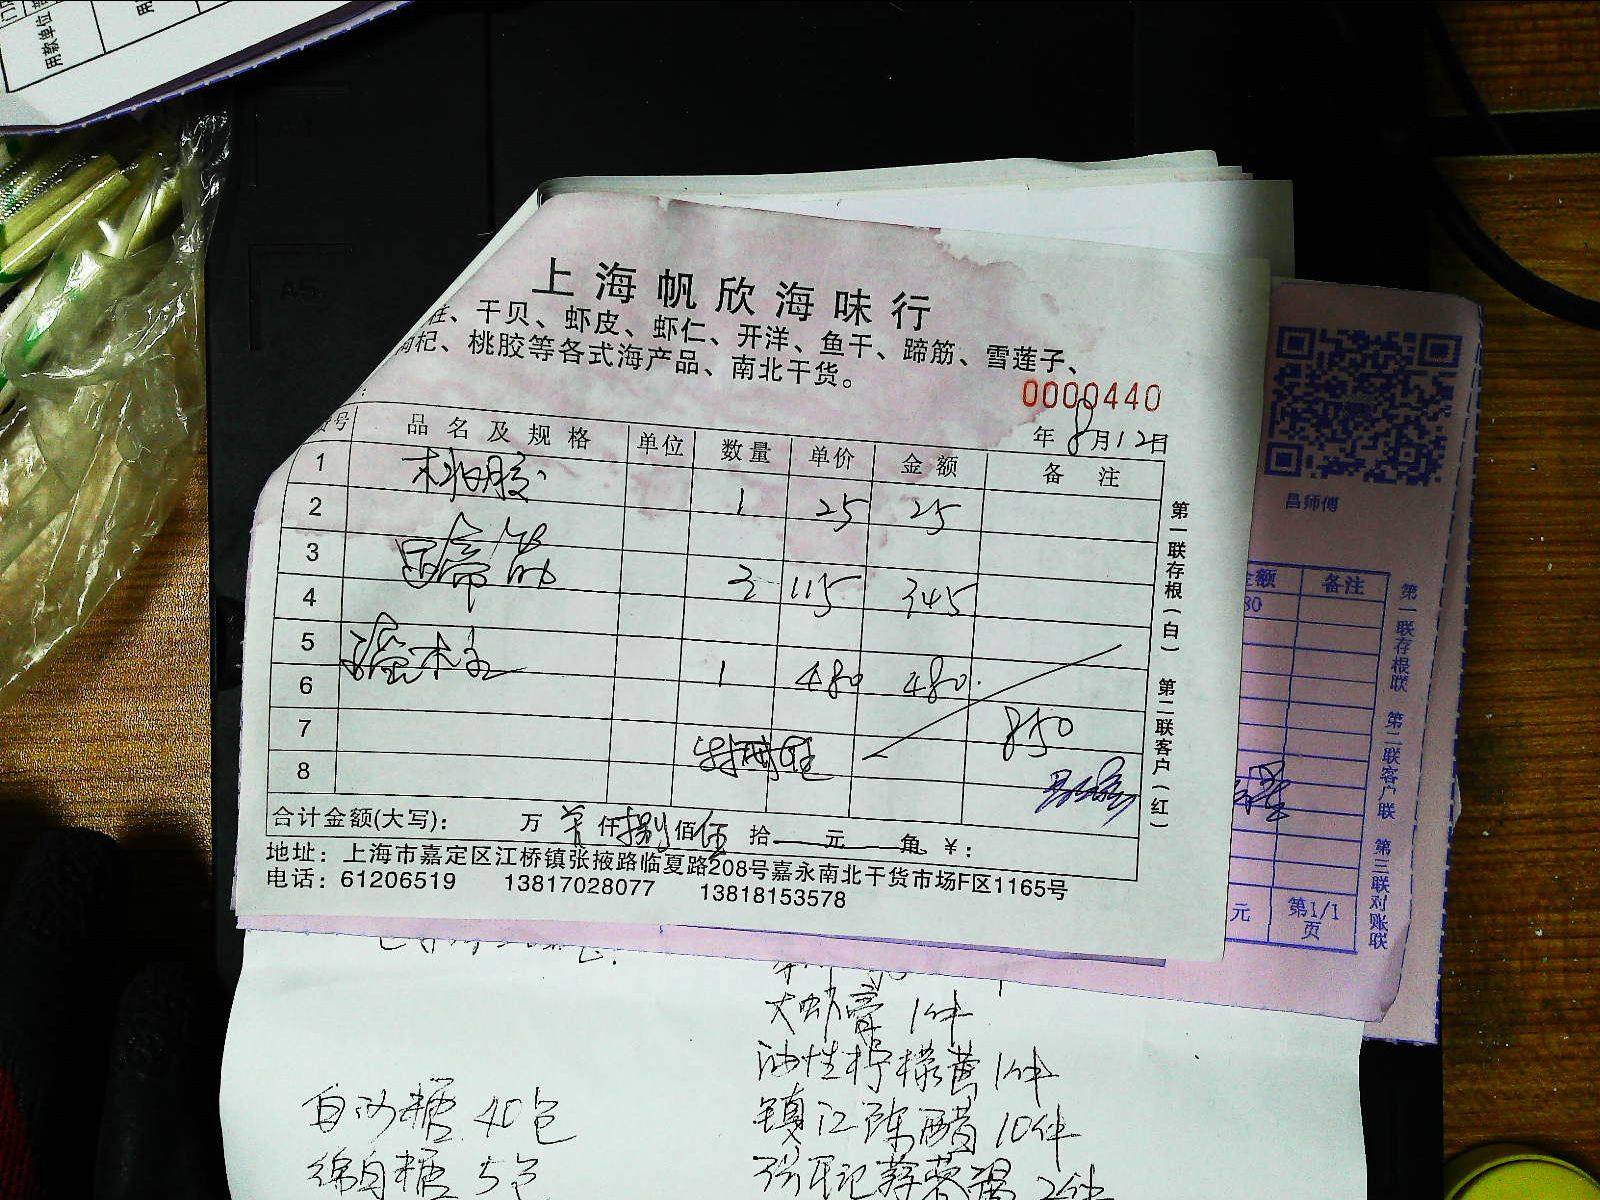 用款单位
上海帆欣海味行
、干贝、虾皮、虾仁、开洋、鱼干、蹄筋、雪莲子、
枸杞、桃胶等各式海产品、南北干货。
0000440
年 8月12日
货号 品名及规格 单位 数量 单价 金额 备注
1
2 1 25 25
3 蹄筋
4 3 115 345
5
6 1 480 480
7 850
8
合计金额(大写): 万 仟 捌 佰 伍 拾 元 角 ¥:
地址: 上海市嘉定区江桥镇张掖路临夏路208号嘉永南北干货市场F区1165号
电话: 61206519 13817028077 13818153578
第一联存根(白) 第二联客户(红)
昌师傅
金额 备注
80
元 第1/1页
第一联存根联 第二联客户联 第三联对账联
油性柠檬黄 1件
白沙糖 40包
镇江陈醋 10件
绵白糖 5包
2件